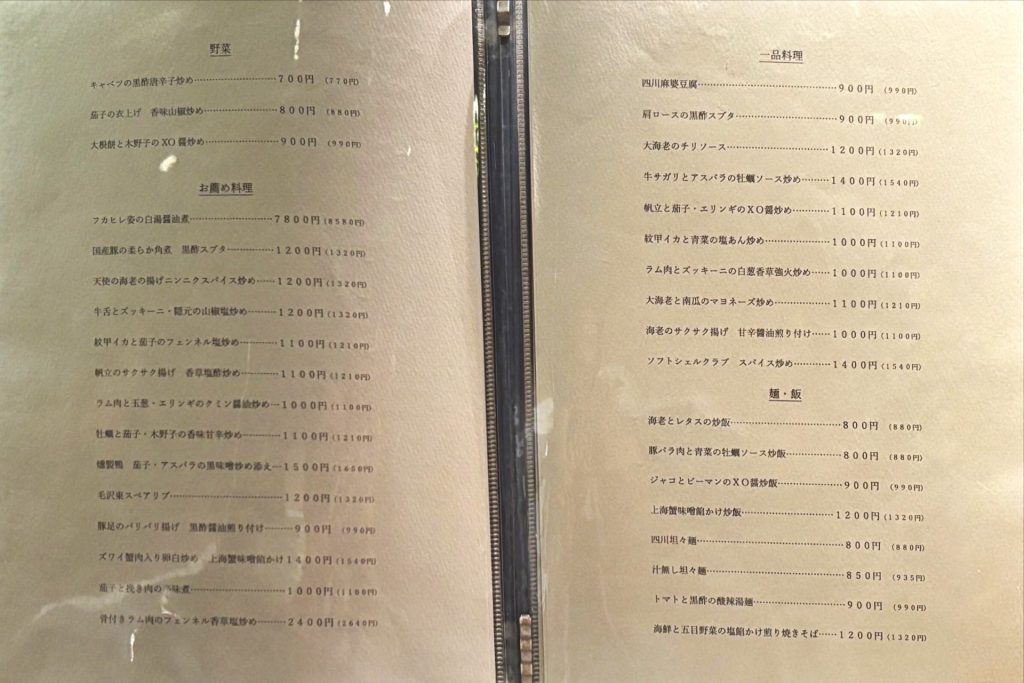 野菜
キャベツの黒酢唐辛子炒め………………………700円 (770円)
茄子の衣上げ　香味山椒炒め……………………800円 (880円)
大根餅と木野子のXO醤炒め……………………900円 (990円)
お薦め料理
フカヒレ姿の白湯醤油煮………………………7800円(8580円)
国産豚の柔らか角煮　黒酢スブタ……………1200円(1320円)
天使の海老の揚げニンニクスパイス炒め……1200円(1320円)
牛舌とズッキーニ・隠元の山椒塩炒め………1200円(1320円)
紋甲イカと茄子のフェンネル塩炒め…………1100円(1210円)
帆立のサクサク揚げ　香草塩酢炒め…………1100円(1210円)
ラム肉と玉葱・エリンギのクミン醤油炒め…1000円(1100円)
牡蠣と茄子・木野子の香味甘辛炒め…………1100円(1210円)
燻製鴨　茄子・アスパラの黒味噌炒め添え…1500円(1650円)
毛沢東スペアリブ………………………………1200円(1320円)
豚足のパリパリ揚げ　黒酢醤油煎り付け………900円 (990円)
ズワイ蟹肉入り卵白炒め　上海蟹味噌餡かけ1400円(1540円)
茄子と挽き肉の味煮……………………………1000円(1100円)
骨付きラム肉のフェンネル香草塩炒め………2400円(2640円)
一品料理
四川麻婆豆腐……………………………………900円 (990円)
肩ロースの黒酢スブタ…………………………900円 (990円)
大海老のチリソース……………………………1200円(1320円)
牛サガリとアスパラの牡蠣ソース炒め………1400円(1540円)
帆立と茄子・エリンギのXO醤炒め…………1100円(1210円)
紋甲イカと青菜の塩あん炒め…………………1000円(1100円)
ラム肉とズッキーニの白葱香草強火炒め……1000円(1100円)
大海老と南瓜のマヨネーズ炒め………………1100円(1210円)
海老のサクサク揚げ　甘辛醤油煎り付け……1000円(1100円)
ソフトシェルクラブ　スパイス炒め…………1400円(1540円)
麺・飯
海老とレタスの炒飯……………………………800円 (880円)
豚バラ肉と青菜の牡蠣ソース炒飯……………800円 (880円)
ジャコとピーマンのXO醤炒飯………………900円 (990円)
上海蟹味噌餡かけ炒飯…………………………1200円(1320円)
四川坦々麺………………………………………800円 (880円)
汁無し坦々麺……………………………………850円 (935円)
トマトと黒酢の酸辣湯麺………………………900円 (990円)
海鮮と五目野菜の塩餡かけ煎り焼きそば……1200円(1320円)